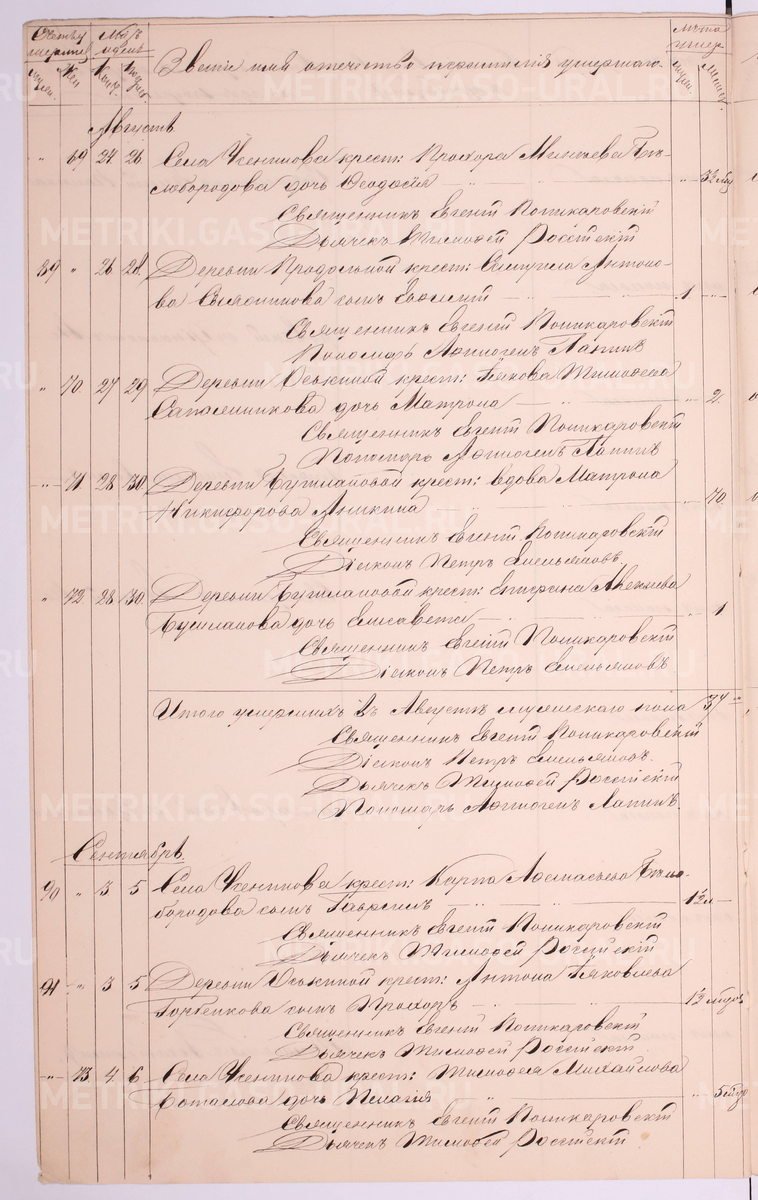 Счетъ умершихъ
Мѣсяцъ и день
Званіе имя отечество и фамилія умершаго.
Лѣта умер.
муж. Жен
Августъ
" 69 24 26 Села Усенинова крест: Прохора Минѣева Бѣ-
лобородова дочь Ѳеодосія
Священникъ Евгеній Поникаровскій
Дьячекъ Тимоѳей Россійскій
89 " 26 28 Деревни Продольной крест: Самуила Антоно-
ва сынъ 1
Священникъ Евгеній Поникаровскій
Пономарь Аѳиногенъ Лапинъ
" 70 27 29 Деревни Оськиной крест: Іакова Тимоѳеева
Сапожникова дочь Матрона " 2
Священникъ Евгеній Поникаровскій
Пономарь Аѳиногенъ Лапинъ
" 71 28 30 Деревни Бушлановой крест: вдова Матрона
Никифорова Аникина " 70
Священникъ Евгеній Поникаровскій
Діаконъ Петръ Емельяновъ
" 72 28 30 Деревни Бушлановой крест:
Бушланова дочь Елисавета " 1
Священникъ Евгеній Поникаровскій
Діаконъ Петръ Емельяновъ
Итого умершихъ въ Августѣ мужескаго пола 37
Священникъ Евгеній Поникаровскій
Діаконъ Петръ Емельяновъ.
Дьячекъ Тимоѳей Россійскій
Пономарь Аѳиногенъ Лапинъ.
Сентябрь
90 " 3 5 Села Усенинова крест: Карпа Аѳанасьева Бѣло-
бородова сынъ Гавріилъ
Священникъ Евгеній Поникаровскій
Дьячекъ Тимоѳей Россійскій
91 " 3 5 Деревни Оськиной крест: Антона Іаковлева
сынъ Прохоръ
Священникъ Евгеній Поникаровскій
Дьячекъ Тимоѳей Россійскій
" 73 4 6 Села Усенинова крест: Тимоѳея Михайлова
дочь Пелагія
Священникъ Евгеній Поникаровскій
Дьячекъ Тимоѳей Россійскій
METRIKI.GASO-URAL.RU